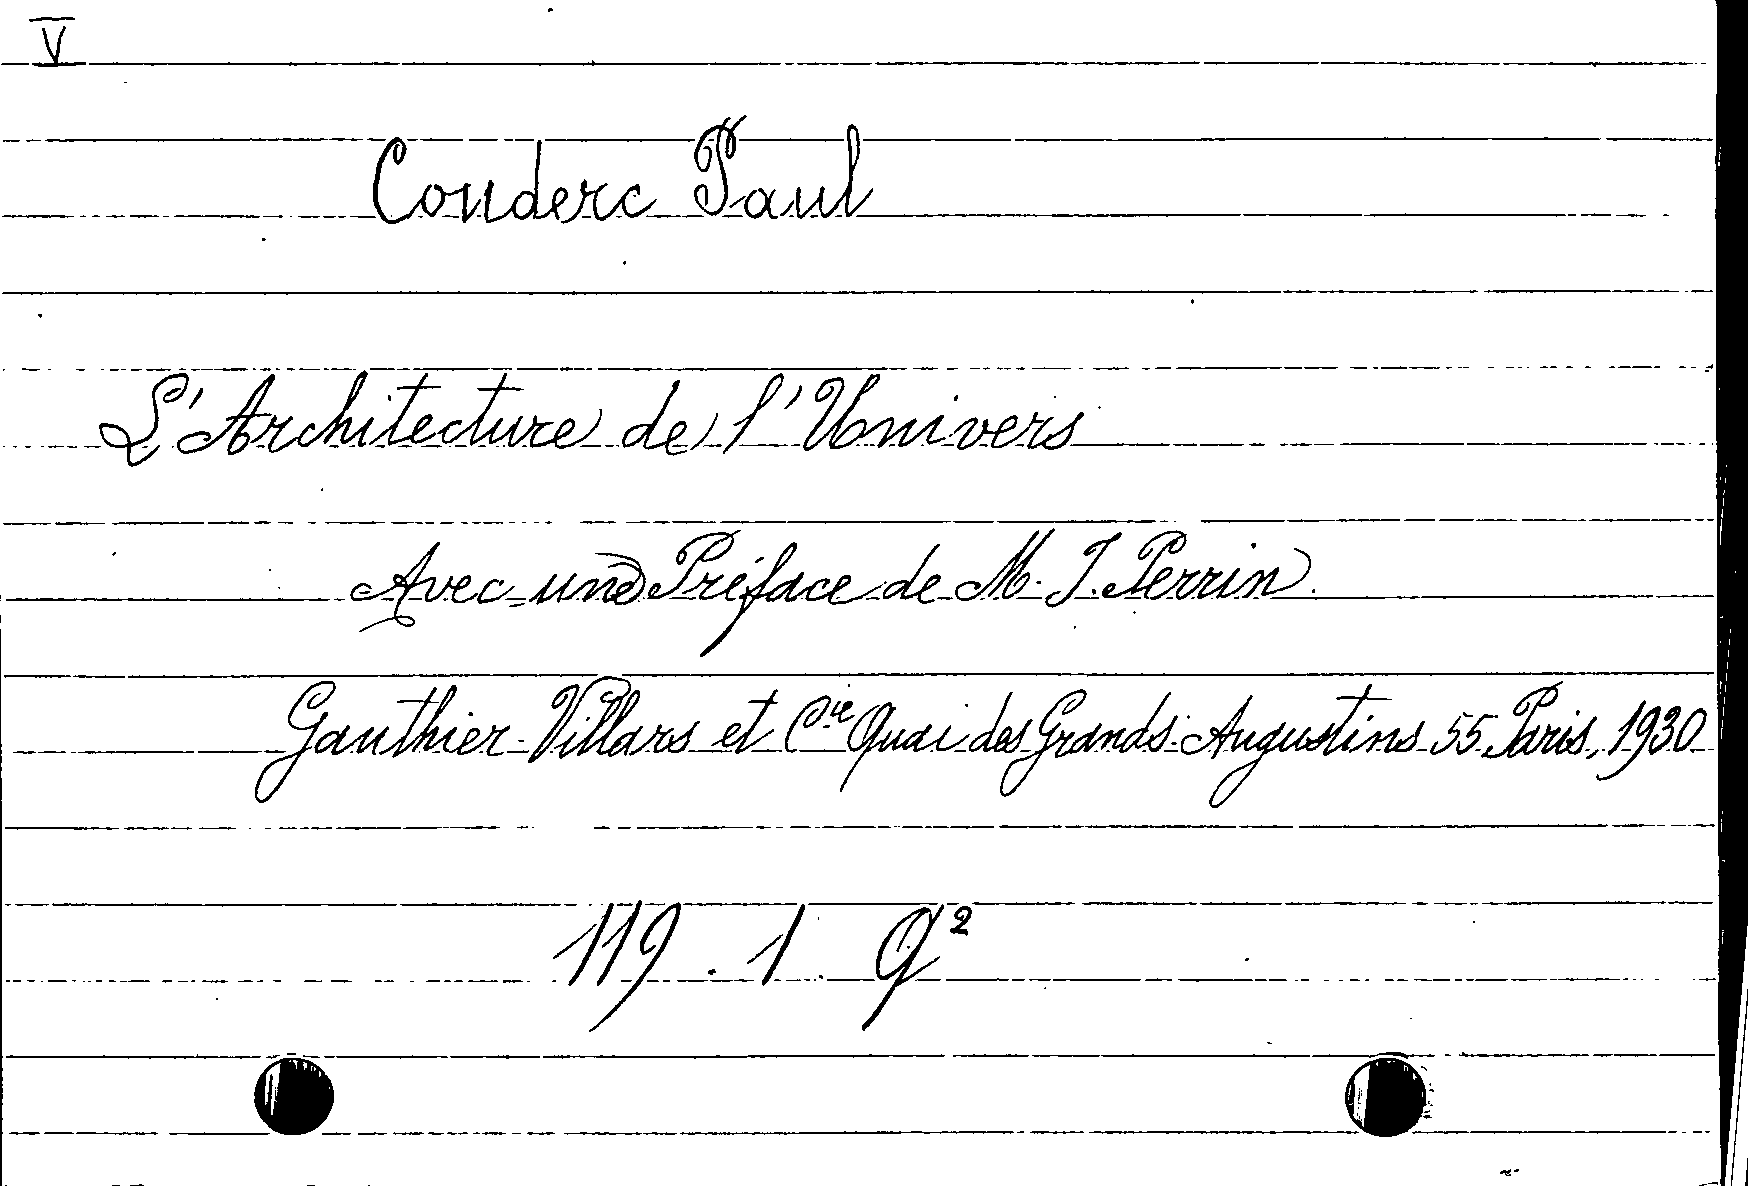 V
Couderc Paul
L'Architecture de l'Univers
Avec une Préface de M. J. Perrin.
Gauthier-Villars et Cie Quai des Grands-Augustins 55 Paris, 1930
119. 1. Q²